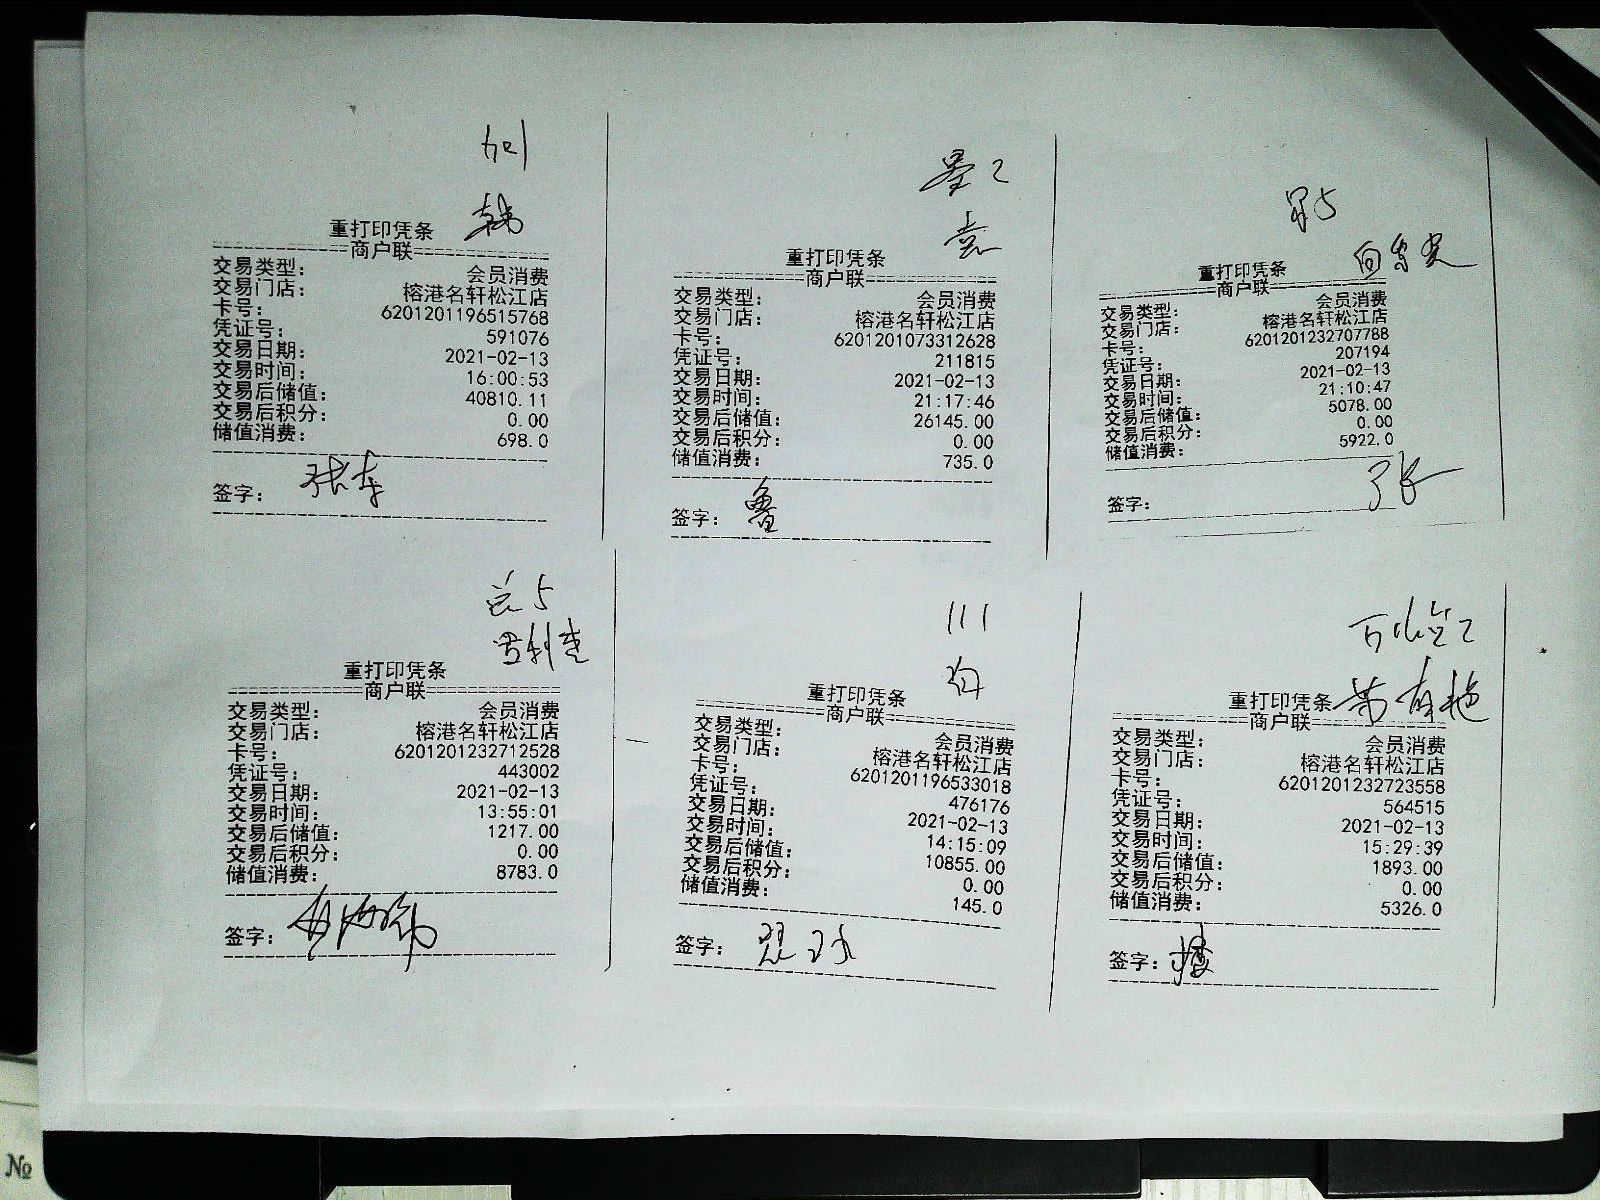 重打印凭条
商户联
交易类型： 会员消费
交易门店： 榕港名轩松江店
卡号： 6201201196515768
凭证号： 591076
交易日期： 2021-02-13
交易时间： 16:00:53
交易后储值： 40810.11
交易后积分： 0.00
储值消费： 698.0
签字：
袁
重打印凭条
商户联
交易类型： 会员消费
交易门店： 榕港名轩松江店
卡号： 6201201073312628
凭证号： 211815
交易日期： 2021-02-13
交易时间： 21:17:46
交易后储值： 26145.00
交易后积分： 0.00
储值消费： 735.0
签字： 鲁
重打印凭条
商户联
交易类型： 会员消费
交易门店： 榕港名轩松江店
卡号： 6201201232707788
凭证号： 207194
交易日期： 2021-02-13
交易时间： 21:10:47
交易后储值： 5078.00
交易后积分： 0.00
储值消费： 5922.0
签字： 张
重打印凭条
商户联
交易类型： 会员消费
交易门店： 榕港名轩松江店
卡号： 6201201232712528
凭证号： 443002
交易日期： 2021-02-13
交易时间： 13:55:01
交易后储值： 1217.00
交易后积分： 0.00
储值消费： 8783.0
签字：
111
重打印凭条
商户联
交易类型： 会员消费
交易门店： 榕港名轩松江店
卡号： 6201201196533018
凭证号： 476176
交易日期： 2021-02-13
交易时间： 14:15:09
交易后储值： 10855.00
交易后积分： 0.00
储值消费： 145.0
签字：
重打印凭条
商户联
交易类型： 会员消费
交易门店： 榕港名轩松江店
卡号： 6201201232723558
凭证号： 564515
交易日期： 2021-02-13
交易时间： 15:29:39
交易后储值： 1893.00
交易后积分： 0.00
储值消费： 5326.0
签字： 楼
№